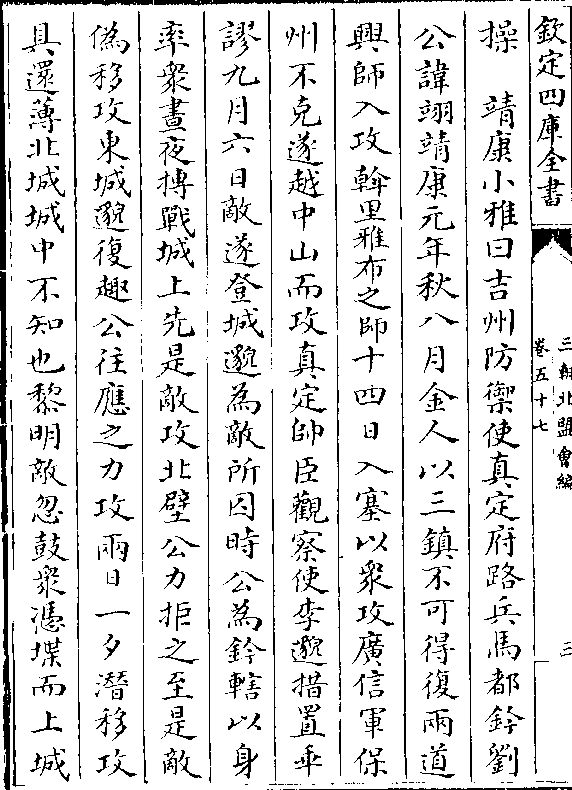 欽定四庫全書
三朝北盟會編
卷五十七
三
操　靖康小雅曰吉州防禦使真定府路兵馬都鈐劉
公諱翊靖康元年秋八月金人以三鎮不可得復兩道
興師入攻斡里雅布之師十四日入塞以衆攻廣信軍保
州不克遂越中山而攻真定帥臣觀察使李邈措置乖
謬九月六日敵遂登城邈為敵所囚時公為鈐轄以身
率衆晝夜搏戰城上先是敵攻北壁公力拒之至是敵
偽移攻東城邈復趣公往應之力攻兩日一夕潛移攻
具還薄北城城中不知也黎明敵忽鼓衆憑堞而上城